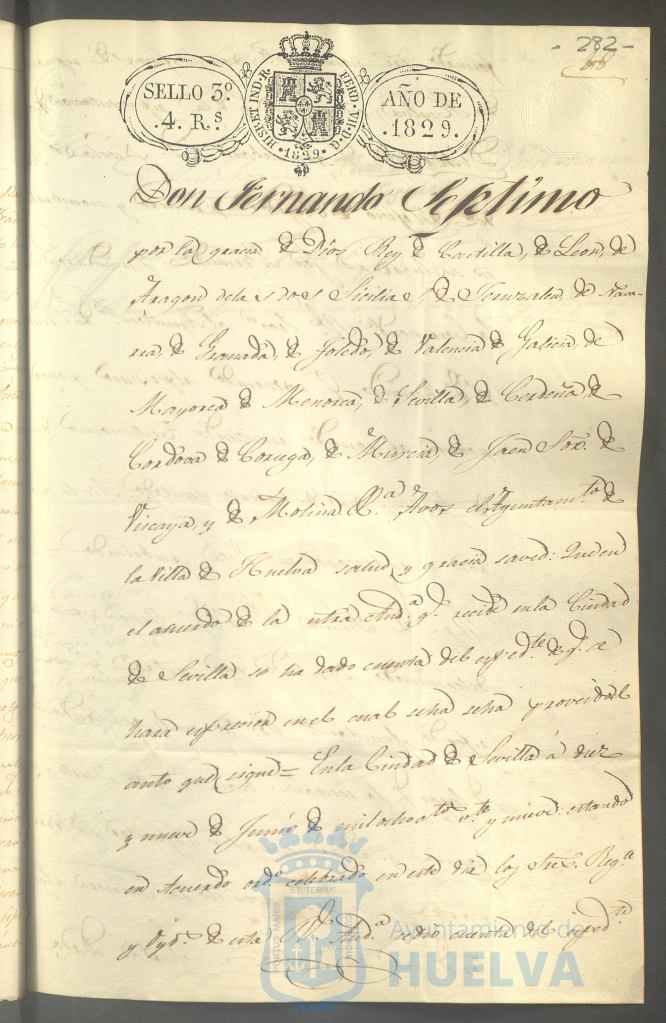 - 282 -
SELLO 3º
.4. Rˢ
HISP. ET IND. R. FERD. VII. D. G.
· 1829 ·
AÑO DE
.1829.
Don Fernando Septimo
por la gracia de Dios Rey de Castilla, de Leon, de
Aragon de las dos Sicilias, de Jeruzalen, de Nava-
rra, de Granada, de Toledo, de Valencia de Galicia, de
Mayorca de Menorca, de Sevilla, de Cerdeña, de
Cordova de Corcega, de Murcia, de Jaen Sor. de
Viscaya, y de Molina &ª. Avos el Ayuntamto. de
la Villa de Huelva salud y gracia saved: Que en
el acuerdo de la ntra Audª. q. recide en la Ciudad
de Sevilla se ha dado cuenta del expedte. de q. se
hara exprecion en el cual seha seha proveido el
auto que sigue = En la Ciudad de Sevilla á diez
y nueve de Junio de mil ochoctos. vte. y nueve: estando
en Acuerdo ordº. celebrado en este dia los Sres. Regte.
y Oydˢ. de esta Rl. Audª. sedio cuenta del expedte.
PORTUS MARIS ET TERRÆ CUSTODIA
Ayuntamiento de
HUELVA